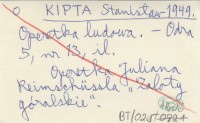 O KIPTA Stanisław - 1949.
Operetka ludowa. - Odra
5, nr 13, il.
Operetka Juliana
Reimschüssla "Zaloty
góralskie".